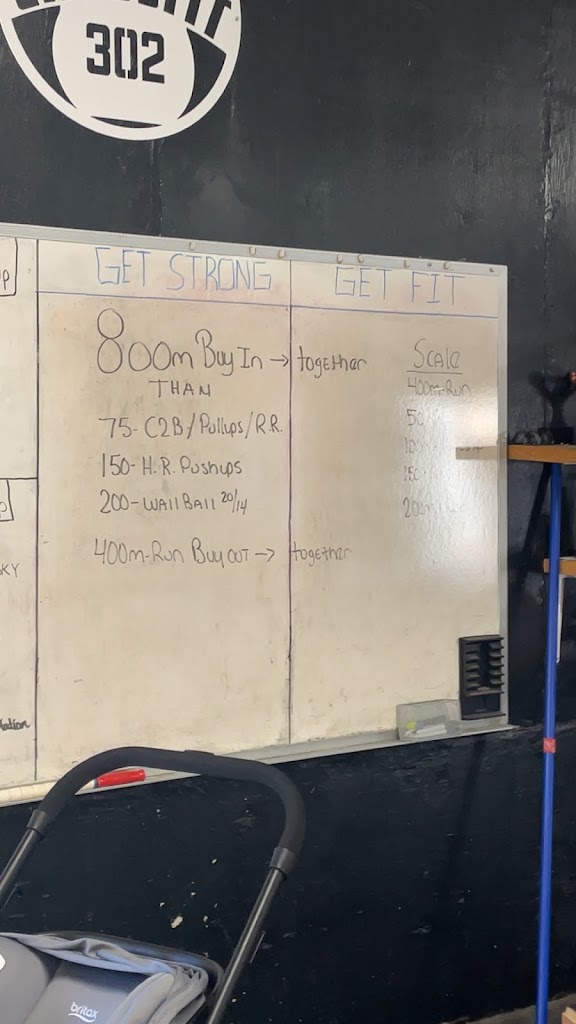 302
GET STRONG
GET FIT
800m Buy In → together
THAN
75- C2B/Pullups/R.R.
150- H.R. Pushups
200- Wall Ball 20/14
400m-Run Buy out → together
Scale
400m-Run
britax